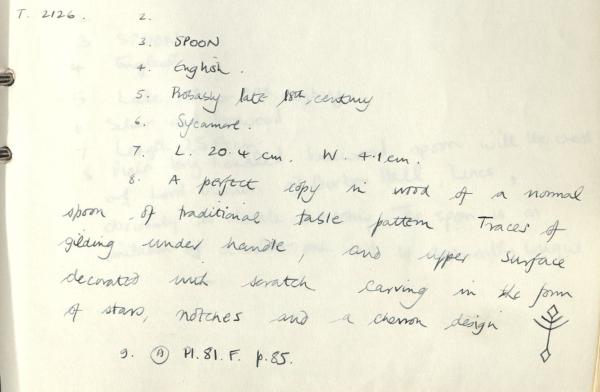 T. 2126. 2.
3. SPOON
4. English.
5. Probably late 18th, century
6. Sycamore.
7. L. 20.4 cm. W. 4.1 cm.
8. A perfect copy in wood of a normal
spoon of traditional table pattern Traces of
gilding under handle, and upper surface
decorated with scratch carving in the form
of stars, notches and a chevron design
9. A Pl. 81. F. p. 85.